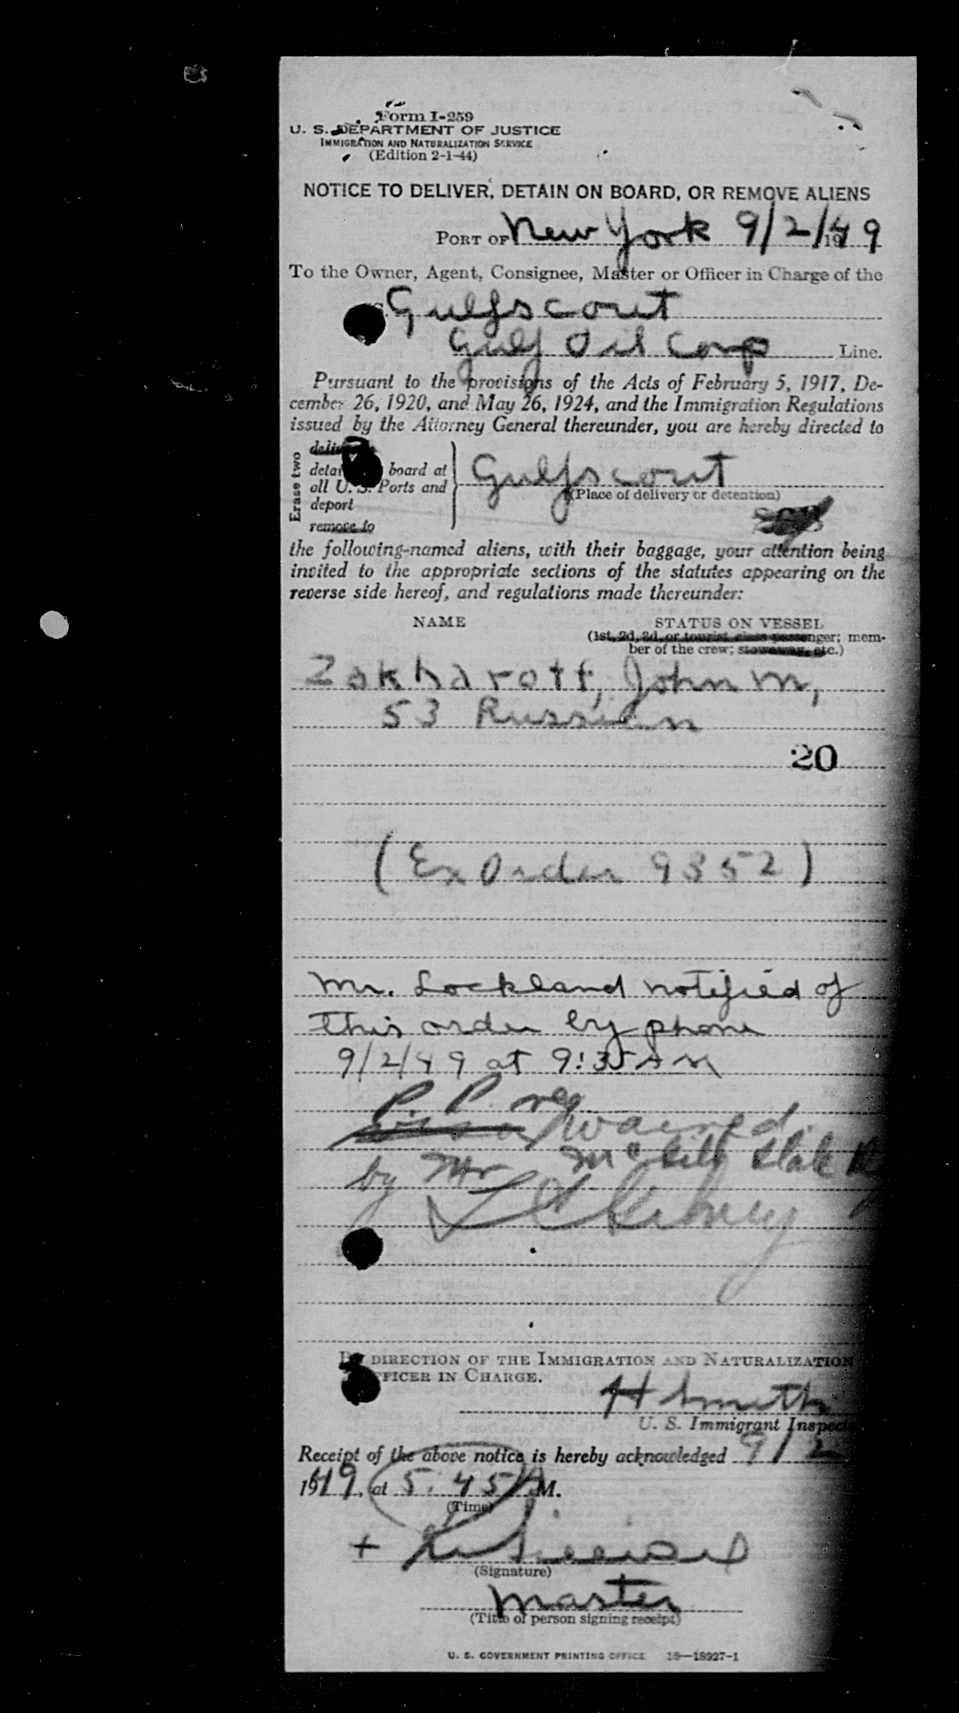 Form I-259
U. S. DEPARTMENT OF JUSTICE
IMMIGRATION AND NATURALIZATION SERVICE
(Edition 2-1-44)
NOTICE TO DELIVER, DETAIN ON BOARD, OR REMOVE ALIENS
PORT OF New York 9/2/1949
To the Owner, Agent, Consignee, Master or Officer in Charge of the
S. Gulfscout
Gulf Oil Corp Line.
Pursuant to the provisions of the Acts of February 5, 1917, De-
cember 26, 1920, and May 26, 1924, and the Immigration Regulations
issued by the Attorney General thereunder, you are hereby directed to
Erase two
deliver
detain board at
all U. S. Ports and
deport
remove to
Gulfscout
(Place of delivery or detention)
the following-named aliens, with their baggage, your attention being
invited to the appropriate sections of the statutes appearing on the
reverse side hereof, and regulations made thereunder:
NAME STATUS ON VESSEL
(1st, 2d, 3d, or tourist class passenger; mem-
ber of the crew; stowaway, etc.)
Zakharoff, John M,
53 Russian
20
(Ex Order 9352)
Mr. Lockland notified of
this order by phone
9/2/49 at 9:35 AM
P. P. req
visa waived
by Mr McGill State
By DIRECTION OF THE IMMIGRATION AND NATURALIZATION
OFFICER IN CHARGE.
H Smith
U. S. Immigrant Inspector
Receipt of the above notice is hereby acknowledged 9/2
1949, at 5.45 A M.
(Time)
+
(Signature)
Master
(Title of person signing receipt)
U. S. GOVERNMENT PRINTING OFFICE 16—18927-1